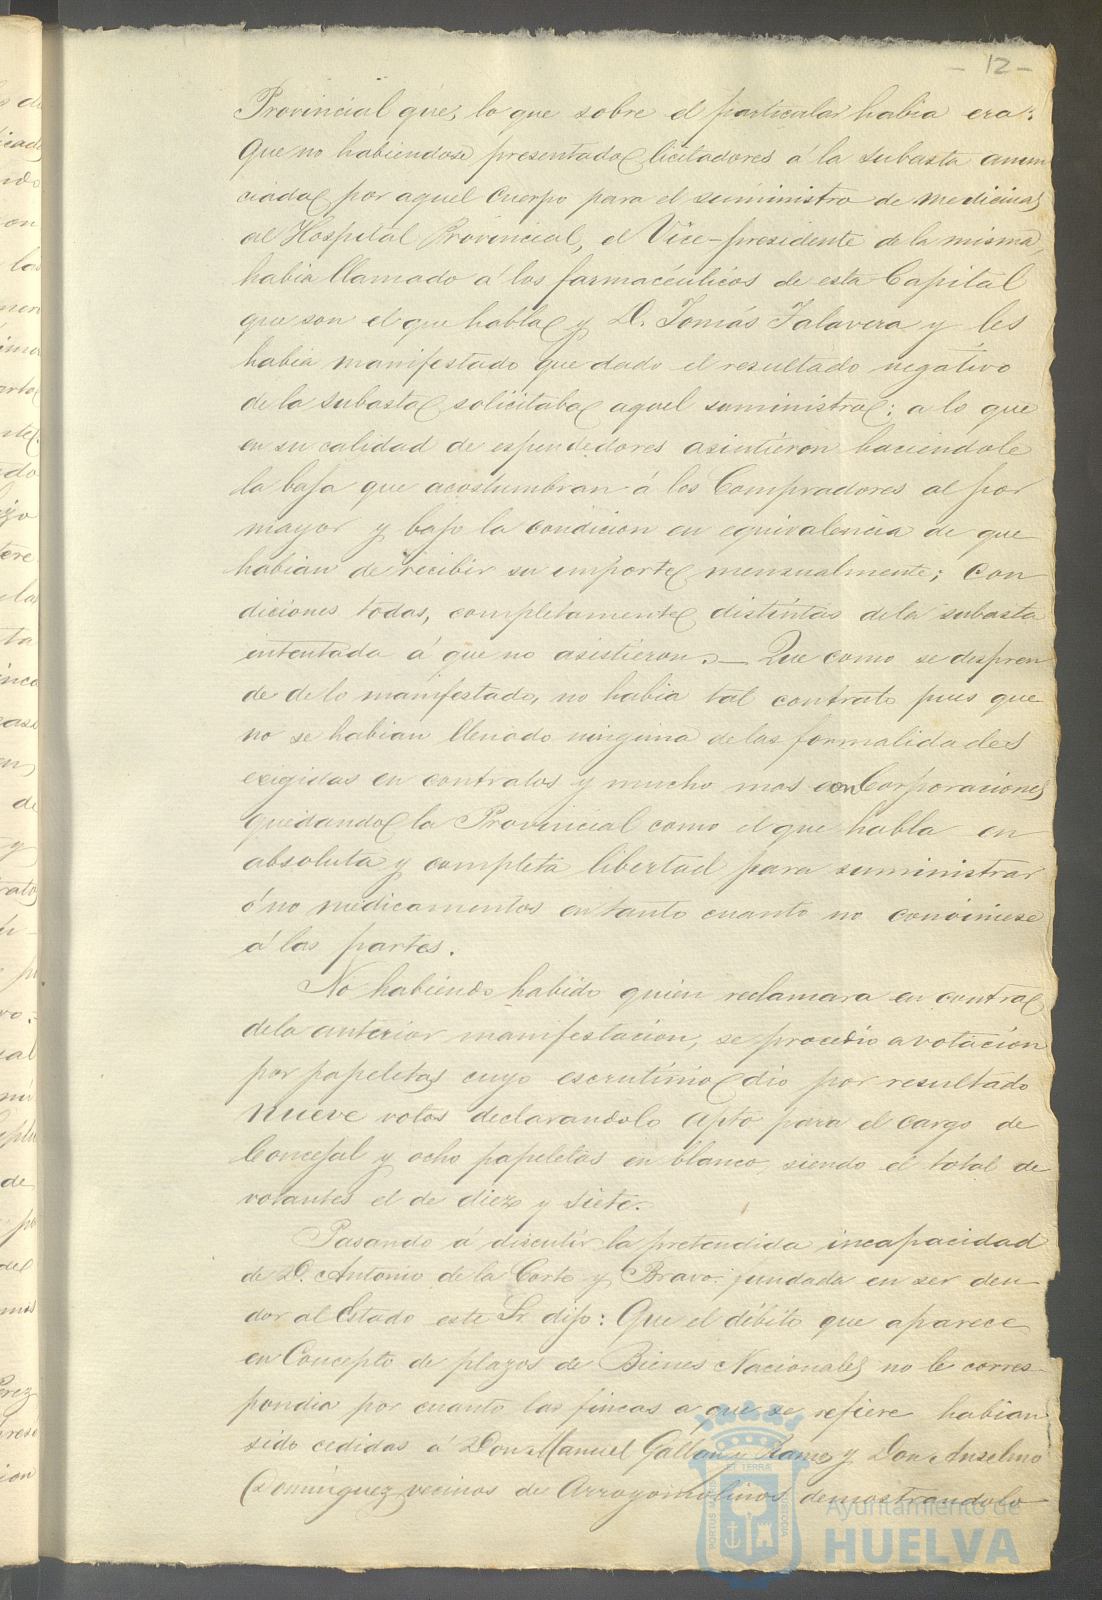 - 12 -
Provincial que, lo que sobre el particular habia era:
Que no habiendose presentado licitadores á la subasta anun
ciada por aquel Cuerpo para el suministro de medicinas
al Hospital Provincial, el Vice-presidente de la misma,
habia llamado á los farmacéuticos de esta Capital
que son el que habla y D. Tomás Talavera y les
habia manifestado que dado el resultado negativo
de la subasta solicitaba aquel suministro: a lo que
en su calidad de espendedores asintieron haciendole
la baja que acostumbran á los Compradores al por
mayor y bajo la condicion en equivalencia de que
habian de recibir su importe mensualmente; con
diciones todas, completamente distintas de la subasta
intentada á que no asistieron.— Que como se despren
de de lo manifestado, no habia tal contrato pues que
no se habian llenado ninguna de las formalidades
exigidas en contratos y mucho mas con Corporaciones
quedando la Provincial como el que habla en
absoluta y completa libertad para suministrar
ó no medicamentos en tanto cuanto no conviniese
á las partes.
No habiendo habido quien reclamara en contra
de la anterior manifestacion, se procedio a votacion
por papeletas cuyo escrutinio dio por resultado
nueve votos declarandolo apto para el cargo de
Concejal y ocho papeletas en blanco, siendo el total de
votantes el de diez y siete.
Pasando á discutir la pretendida incapacidad
de D. Antonio de la Corte y Bravo fundada en ser deu-
dor al Estado este Sr. dijo: Que el débito que aparece
en Concepto de plazos de Bienes Nacionales no le corres-
pondia por cuanto las fincas a que se refiere habian
sido cedidas á Don Manuel Gallan y Ramo y Don Anselmo
Dominguez vecinos de Arroyomolinos demostrandolo
Ayuntamiento de
HUELVA